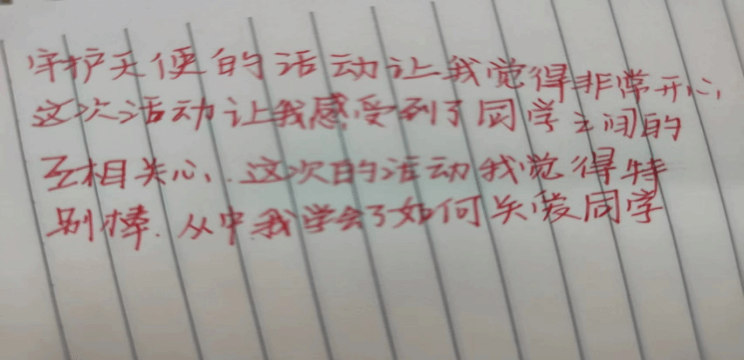 守护天使的活动让我觉得非常开心,
这次活动让我感受到了同学之间的
互相关心、这次的活动我觉得特
别棒.从中我学会了如何关爱同学